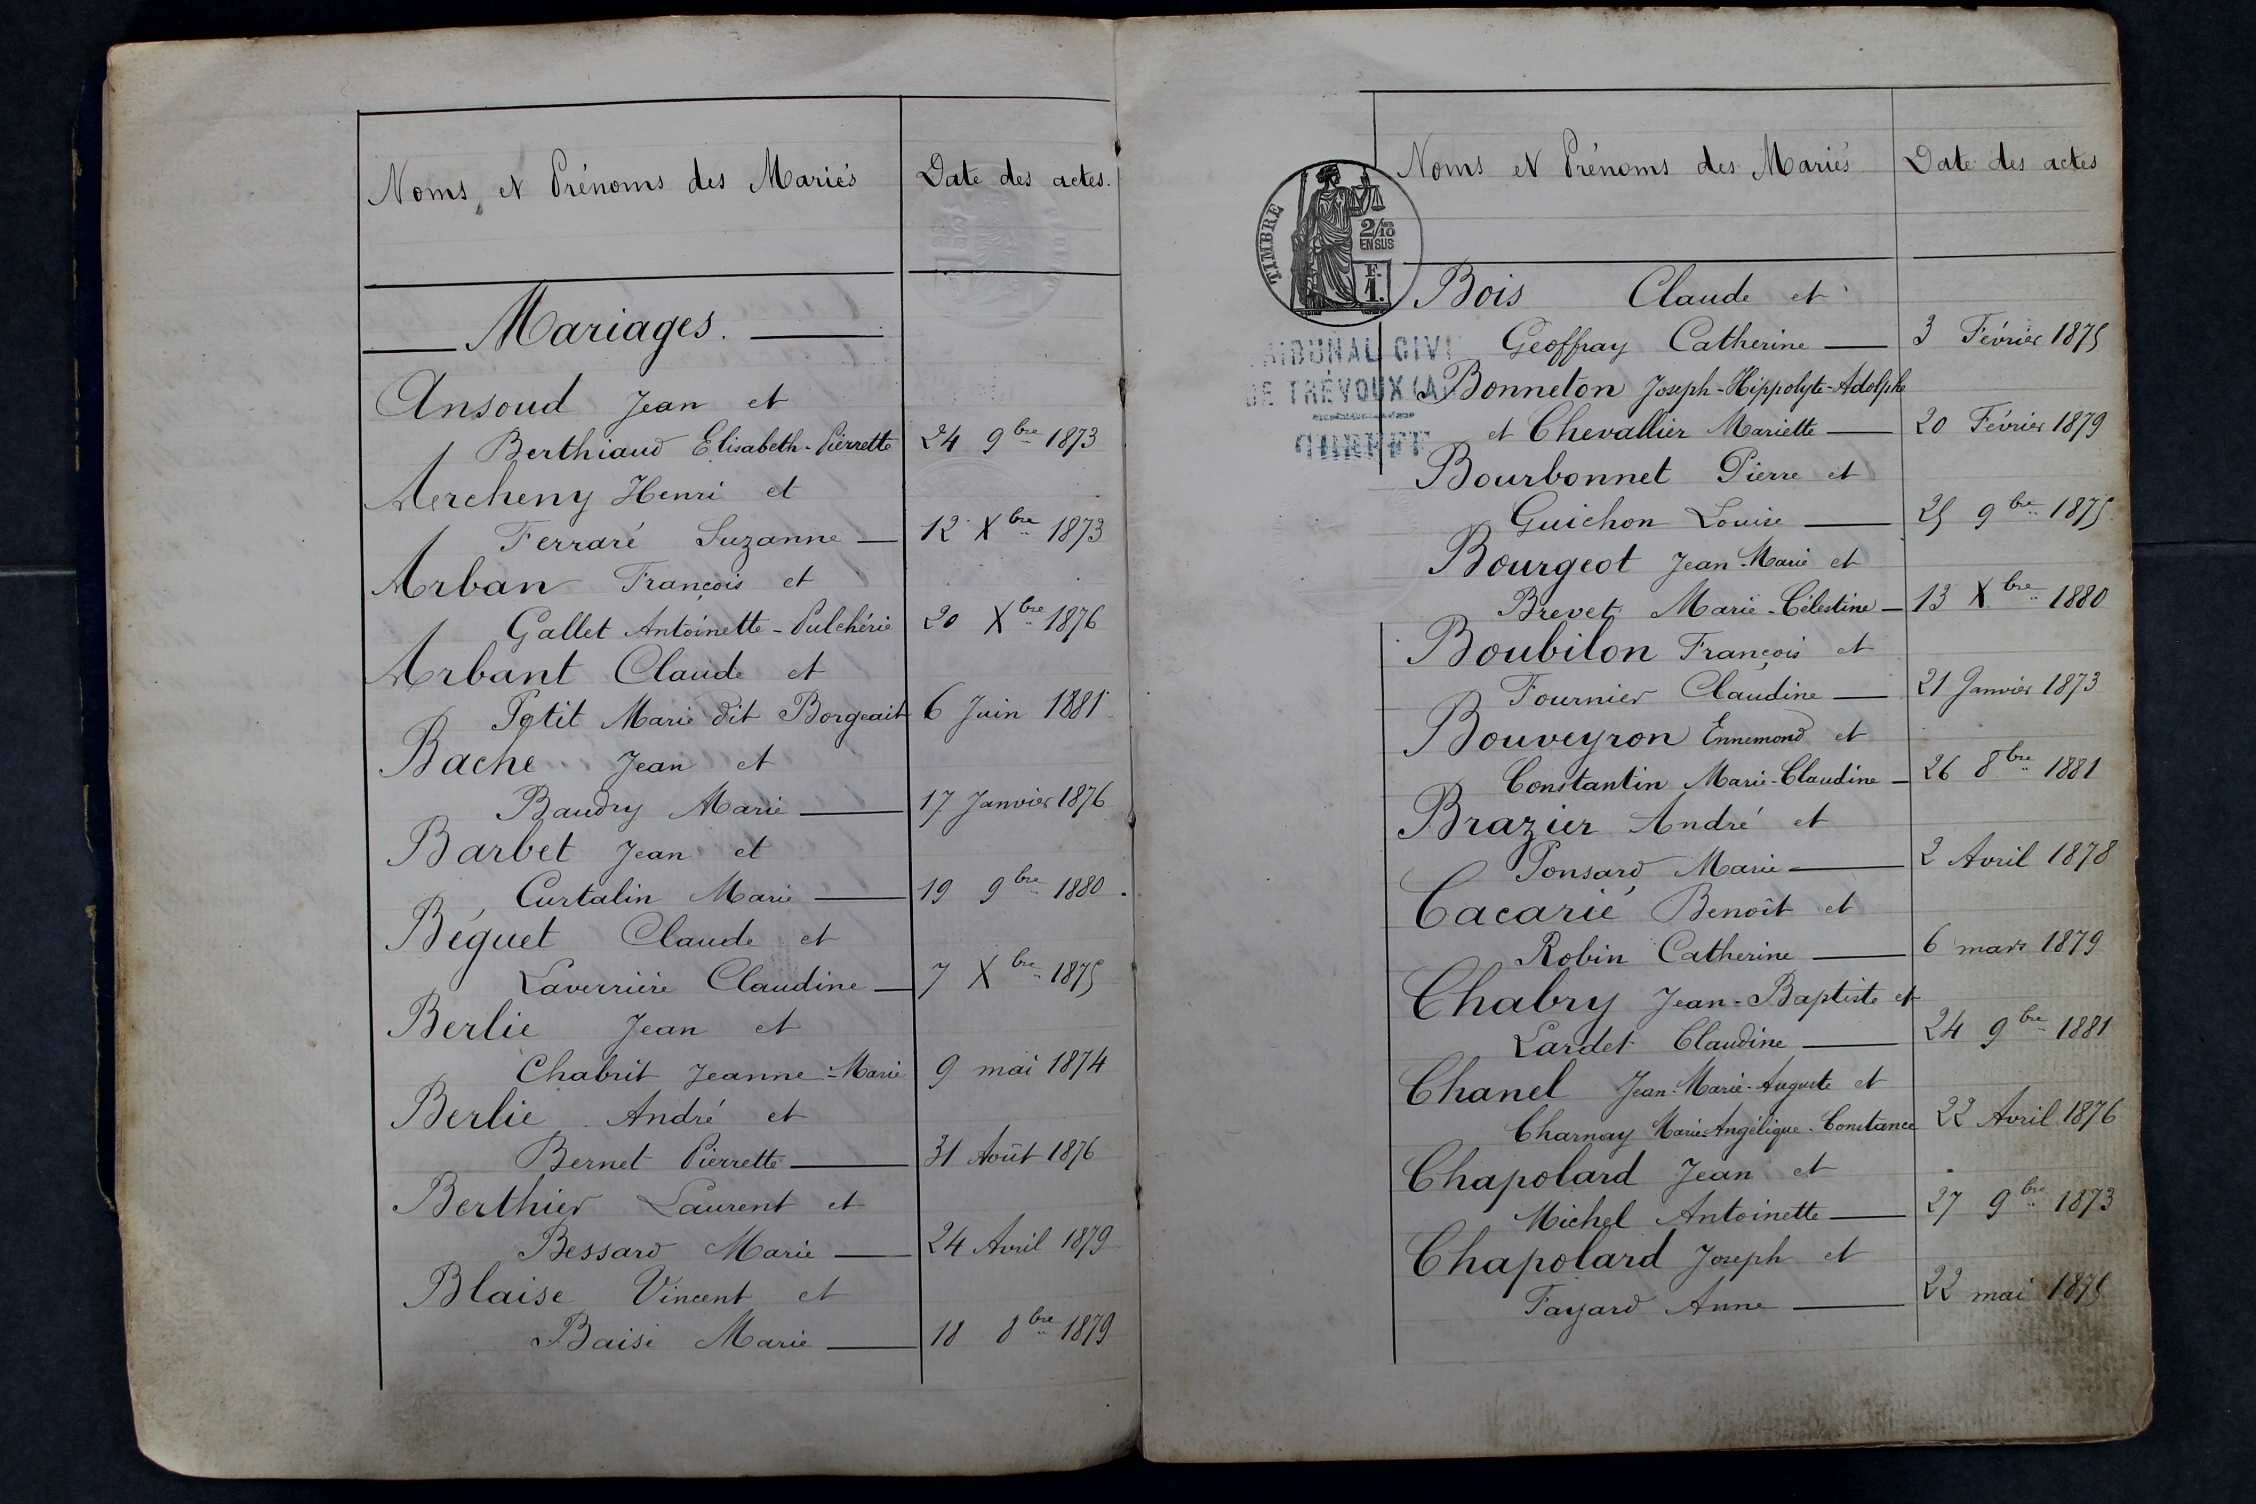 Noms et Prénoms des Mariés
Date des actes.
Mariages.
Ansoud Jean et
Berthiaud Elisabeth-Pierrette 24 9bre 1873
Archeny Henri et
Ferraré Suzanne 12 Xbre 1873
Arban François et
Gallet Antoinette-Pulchérie 20 Xbre 1876
Arbant Claude et
Petit Marie dit Borgeait 6 Juin 1881
Bache Jean et
Baudry Marie 17 Janvier 1876
Barbet Jean et
Curtalin Marie 19 9bre 1880.
Béguet Claude et
Laverrière Claudine 7 Xbre 1875
Berlie Jean et
Chabrit Jeanne-Marie 9 mai 1874
Berlie André et
Bernet Pierrette 31 Août 1876
Berthier Laurent et
Bessard Marie 24 Avril 1879
Blaise Vincent et
Baisi Marie 18 8bre 1879
Noms et Prénoms des Mariés
Date des actes
TIMBRE
2/10
EN SUS
F.
1.
TRIBUNAL CIVI
DE TRÉVOUX (A
GREFFE
Bois Claude et
Geoffray Catherine 3 Février 1875
Bonneton Joseph-Hippolyte-Adolphe
et Chevallier Mariette 20 Février 1879
Bourbonnet Pierre et
Guichon Louise 25 9bre 1875
Bourgeot Jean-Marie et
Brevet Marie-Célestine 13 Xbre 1880
Boubilon François et
Fournier Claudine 21 Janvier 1873
Bouveyron Ennemond et
Constantin Marie-Claudine 26 8bre 1881
Brazier André et
Ponsard Marie 2 Avril 1878
Cacarié Benoît et
Robin Catherine 6 mars 1879
Chabry Jean-Baptiste et
Lardet Claudine 24 9bre 1881
Chanel Jean-Marie-Auguste et
Charnay Marie-Angélique-Constance 22 Avril 1876
Chapolard Jean et
Michel Antoinette 27 9bre 1873
Chapolard Joseph et
Fayard Anne 22 mai 1875